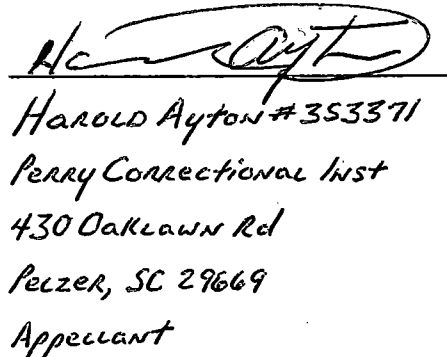 Ha Ayt
Harold Ayton #353371
Perry Correctional Inst
430 Oaklawn Rd
Pelzer, SC 29669
Appellant